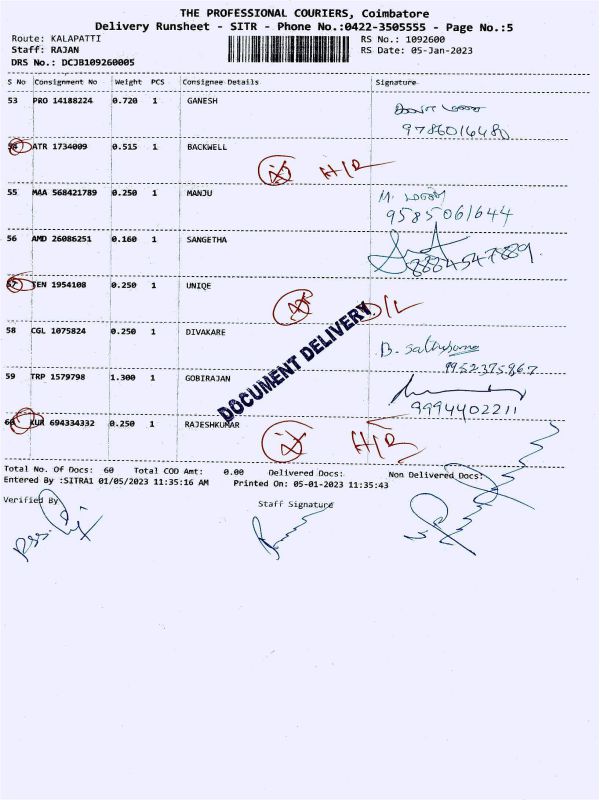 THE PROFESSIONAL COURIERS, Coimbatore
Delivery Runsheet - SITR - Phone No.:0422-3505555 - Page No.:5
Route: KALAPATTI RS No.: 1092600
Staff: RAJAN RS Date: 05-Jan-2023
DRS No.: DCJB109260005
S No Consignment No Weight PCS Consignee Details Signature
53 PRO 14188224 0.720 1 GANESH
9786016480
54 ATR 1734009 0.515 1 BACKWELL
H/R
55 MAA 568421789 0.250 1 MANJU M.
9585061644
56 AMD 26086251 0.160 1 SANGETHA
8884547889
57 TEN 1954108 0.250 1 UNIQE
D/L
58 CGL 1075824 0.250 1 DIVAKARE B.
9952375867
59 TRP 1579798 1.300 1 GOBIRAJAN
9994402211
60 KUR 694334332 0.250 1 RAJESHKUMAR
H/R
DOCUMENT DELIVERY
Total No. Of Docs: 60 Total COD Amt: 0.00 Delivered Docs: Non Delivered Docs:
Entered By :SITRA1 01/05/2023 11:35:16 AM Printed On: 05-01-2023 11:35:43
Verified By Staff Signature